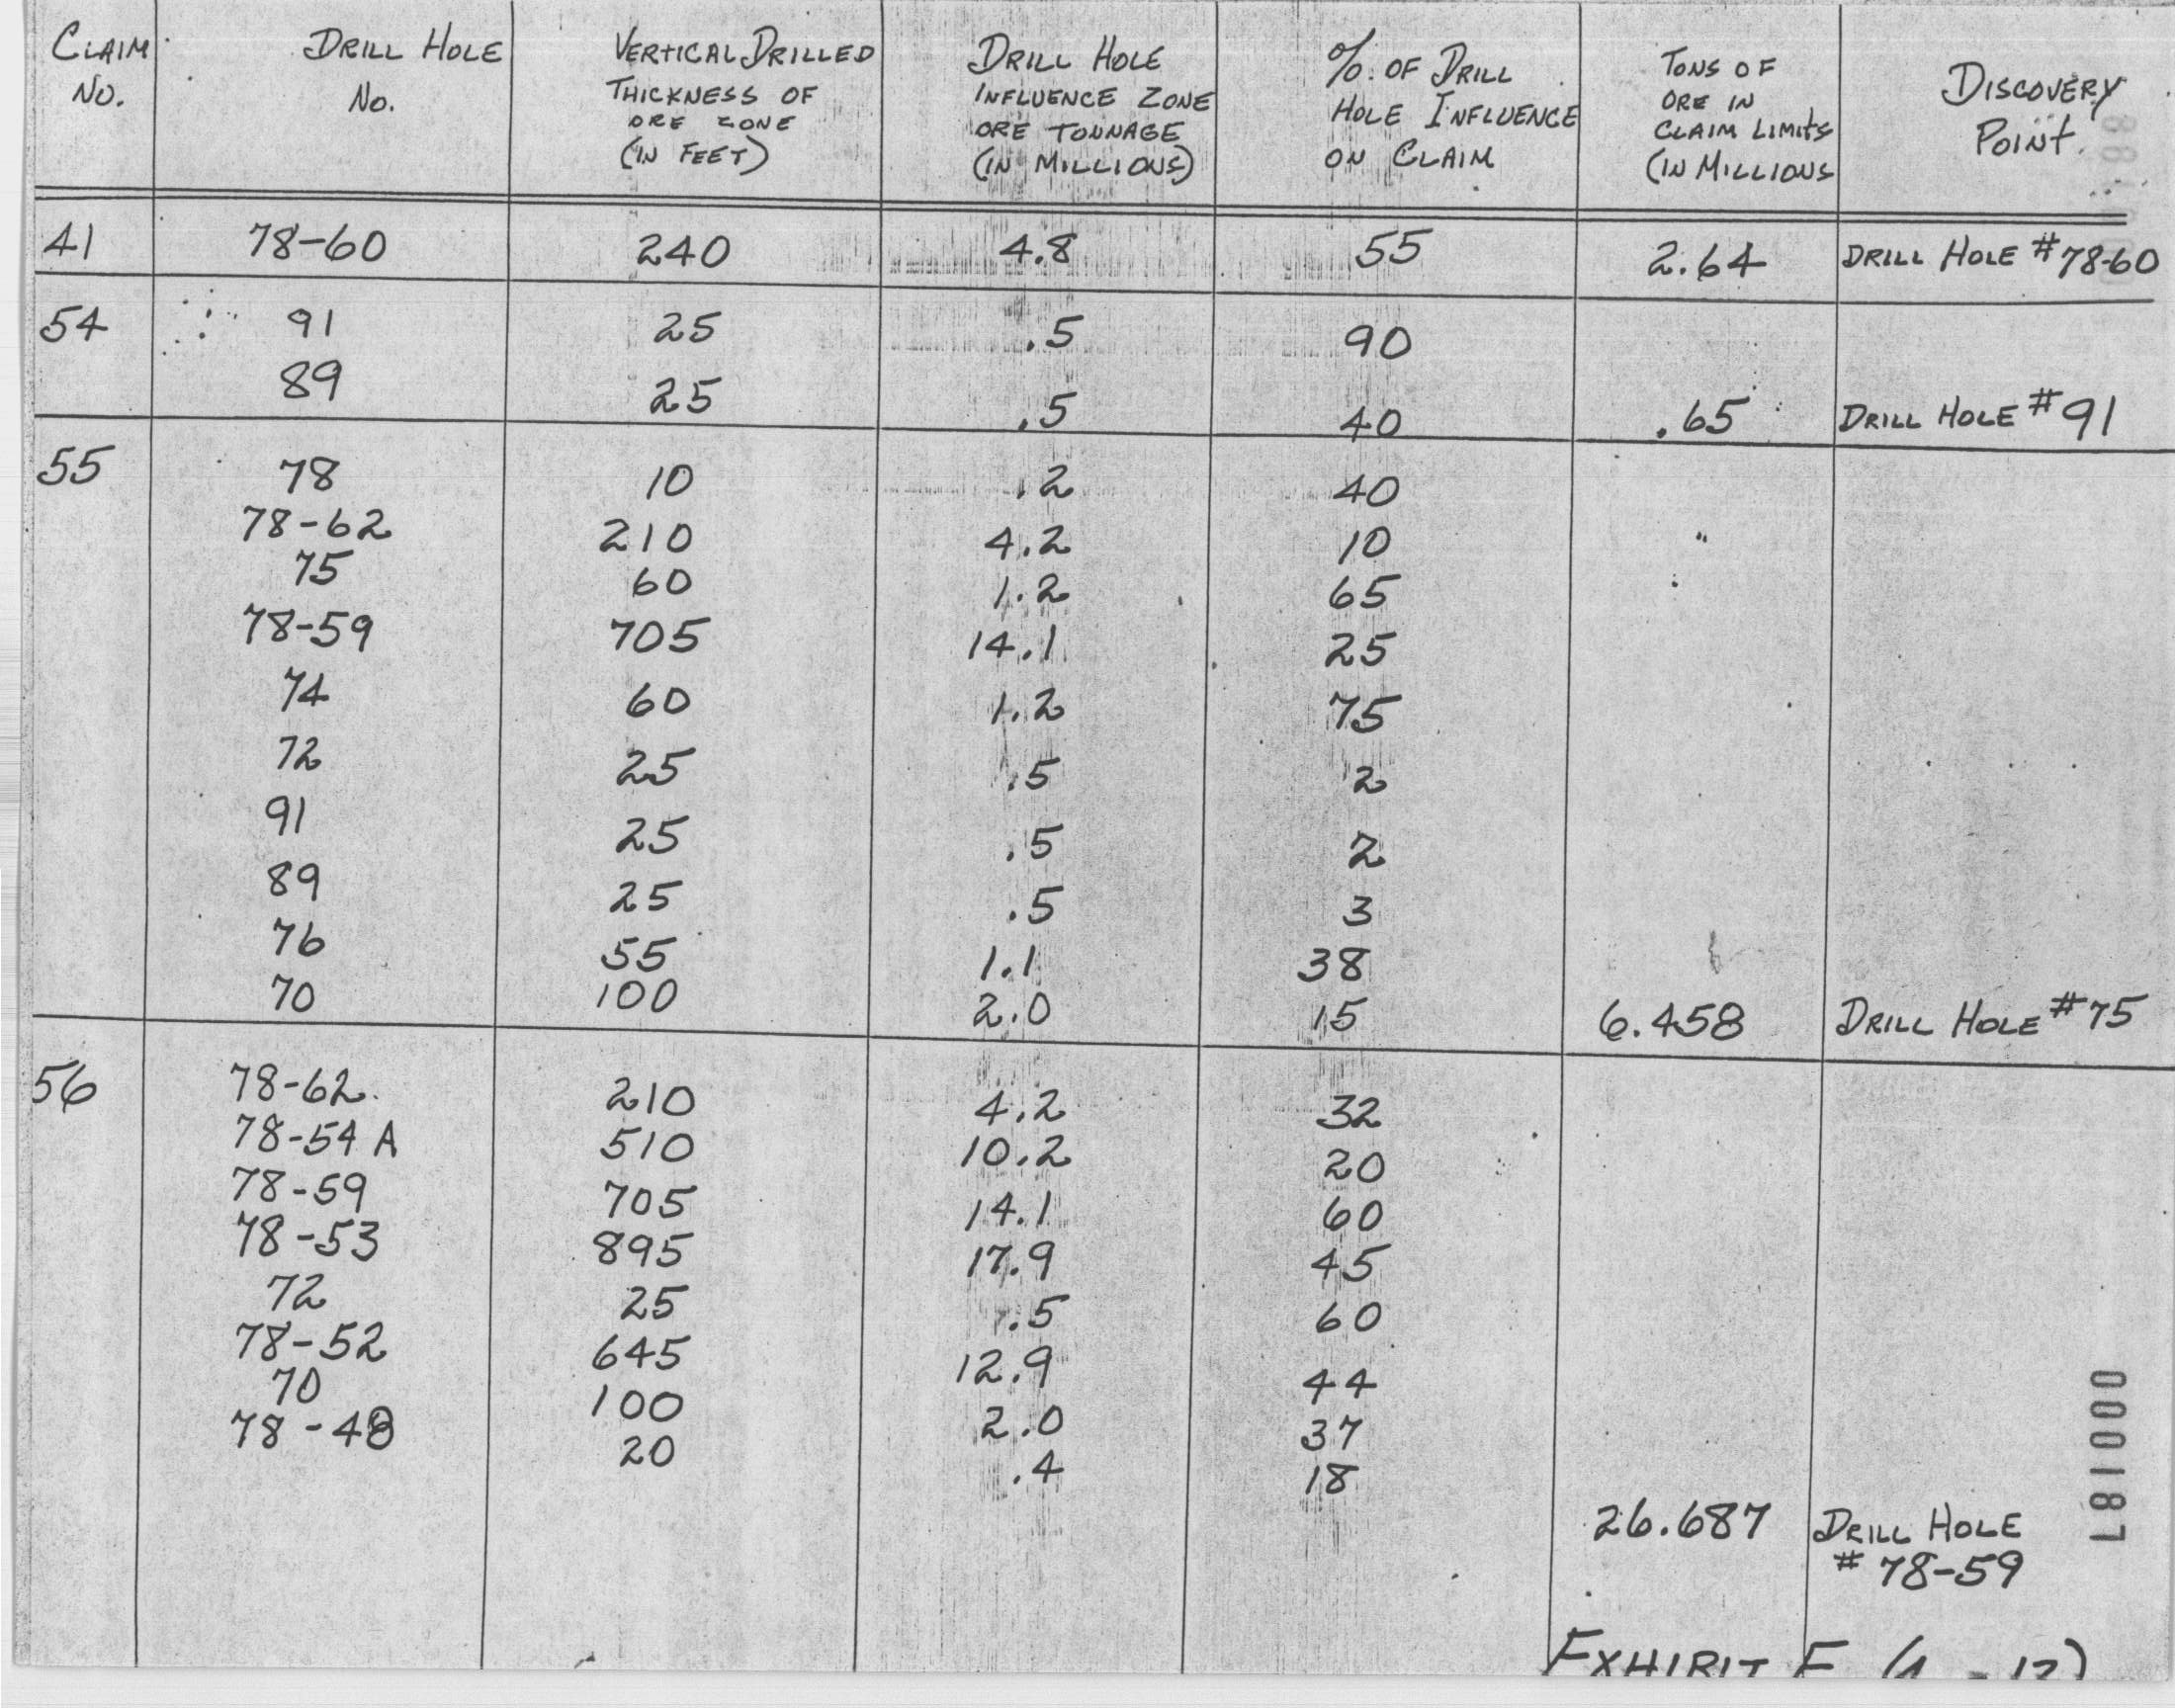 CLAIM NO. DRILL HOLE NO. VERTICAL DRILLED THICKNESS OF ORE ZONE (IN FEET) DRILL HOLE INFLUENCE ZONE ORE TONNAGE (IN MILLIONS) % OF DRILL HOLE INFLUENCE ON CLAIM TONS OF ORE IN CLAIM LIMITS (IN MILLIONS DISCOVERY POINT.
41 78-60 240 4.8 55 2.64 DRILL HOLE #78-60
54 91 25 .5 90
89 25 .5 40 .65 DRILL HOLE #91
55 78 10 .2 40
78-62 210 4.2 10
75 60 1.2 65
78-59 705 14.1 25
74 60 1.2 75
72 25 .5 2
91 25 .5 2
89 25 .5 3
76 55 1.1 38
70 100 2.0 15 6.458 DRILL HOLE #75
56 78-62. 210 4.2 32
78-54 A 510 10.2 20
78-59 705 14.1 60
78-53 895 17.9 45
72 25 .5 60
78-52 645 12.9 44
70 100 2.0 37
78-48 20 .4 18
26.687 DRILL HOLE
# 78-59
000187
EXHIBIT